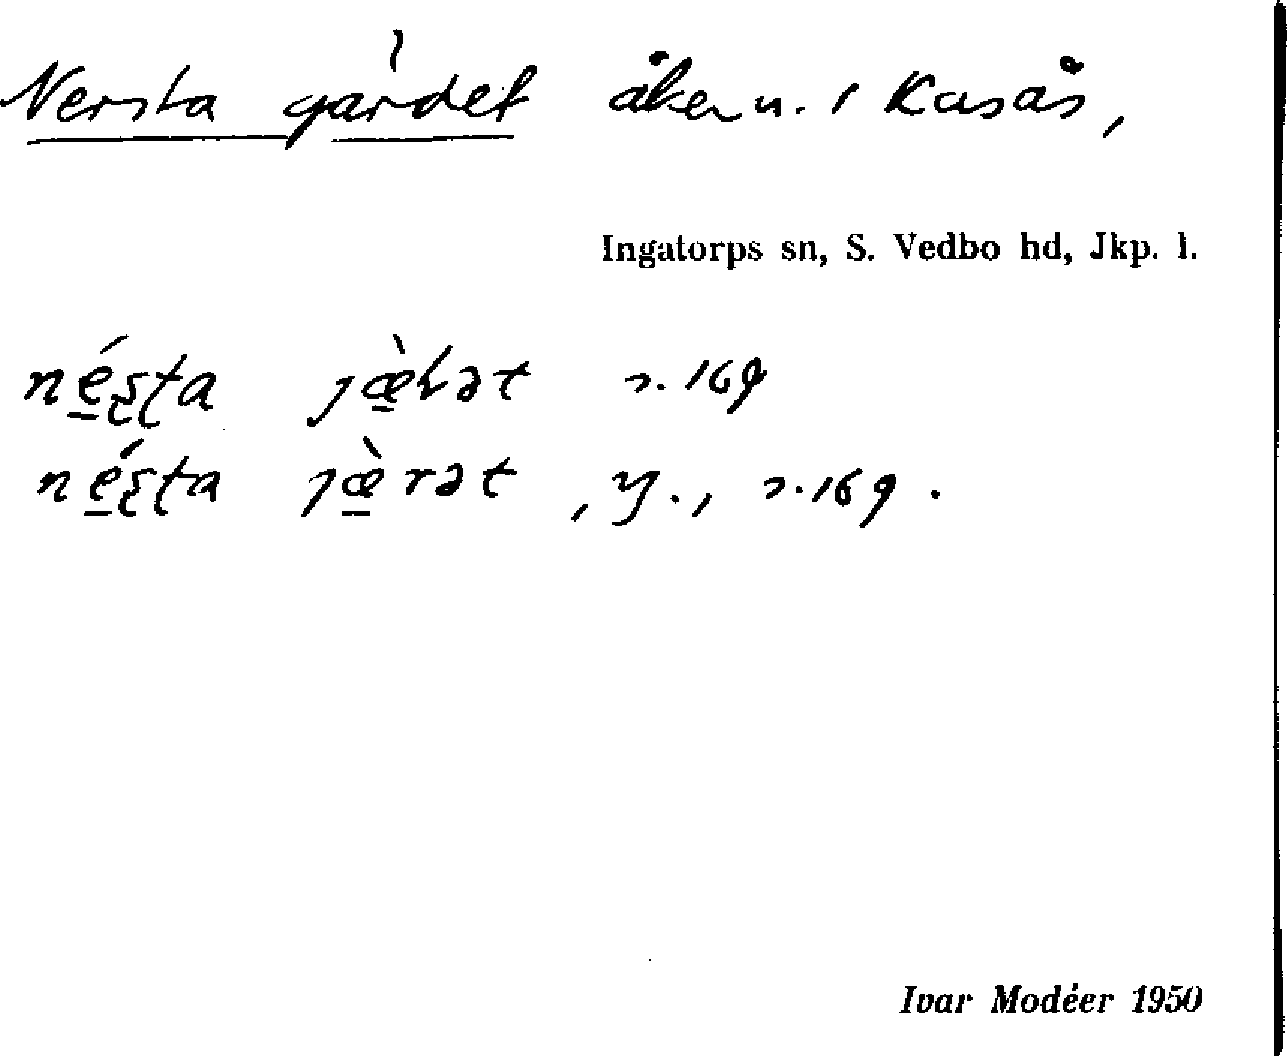 Nersta gärdet åkern. i Kasås,
Ingatorps sn, S. Vedbo hd, Jkp. l.
né̱ʂʈa jæ̱̀ɽət s. 169
né̱ʂʈa jæ̱̀rət, y., s. 169.
Ivar Modéer 1950